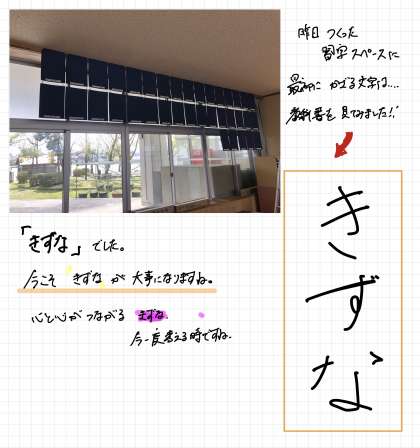 昨日 つくった
習字スペースに
最初に かざる文字は....
教科書を 見てみました!!
きずな
「きずな」でした。
今こそ きずな が 大事になりますね。
心と心が つながる きずな
今一度考える時ですね。